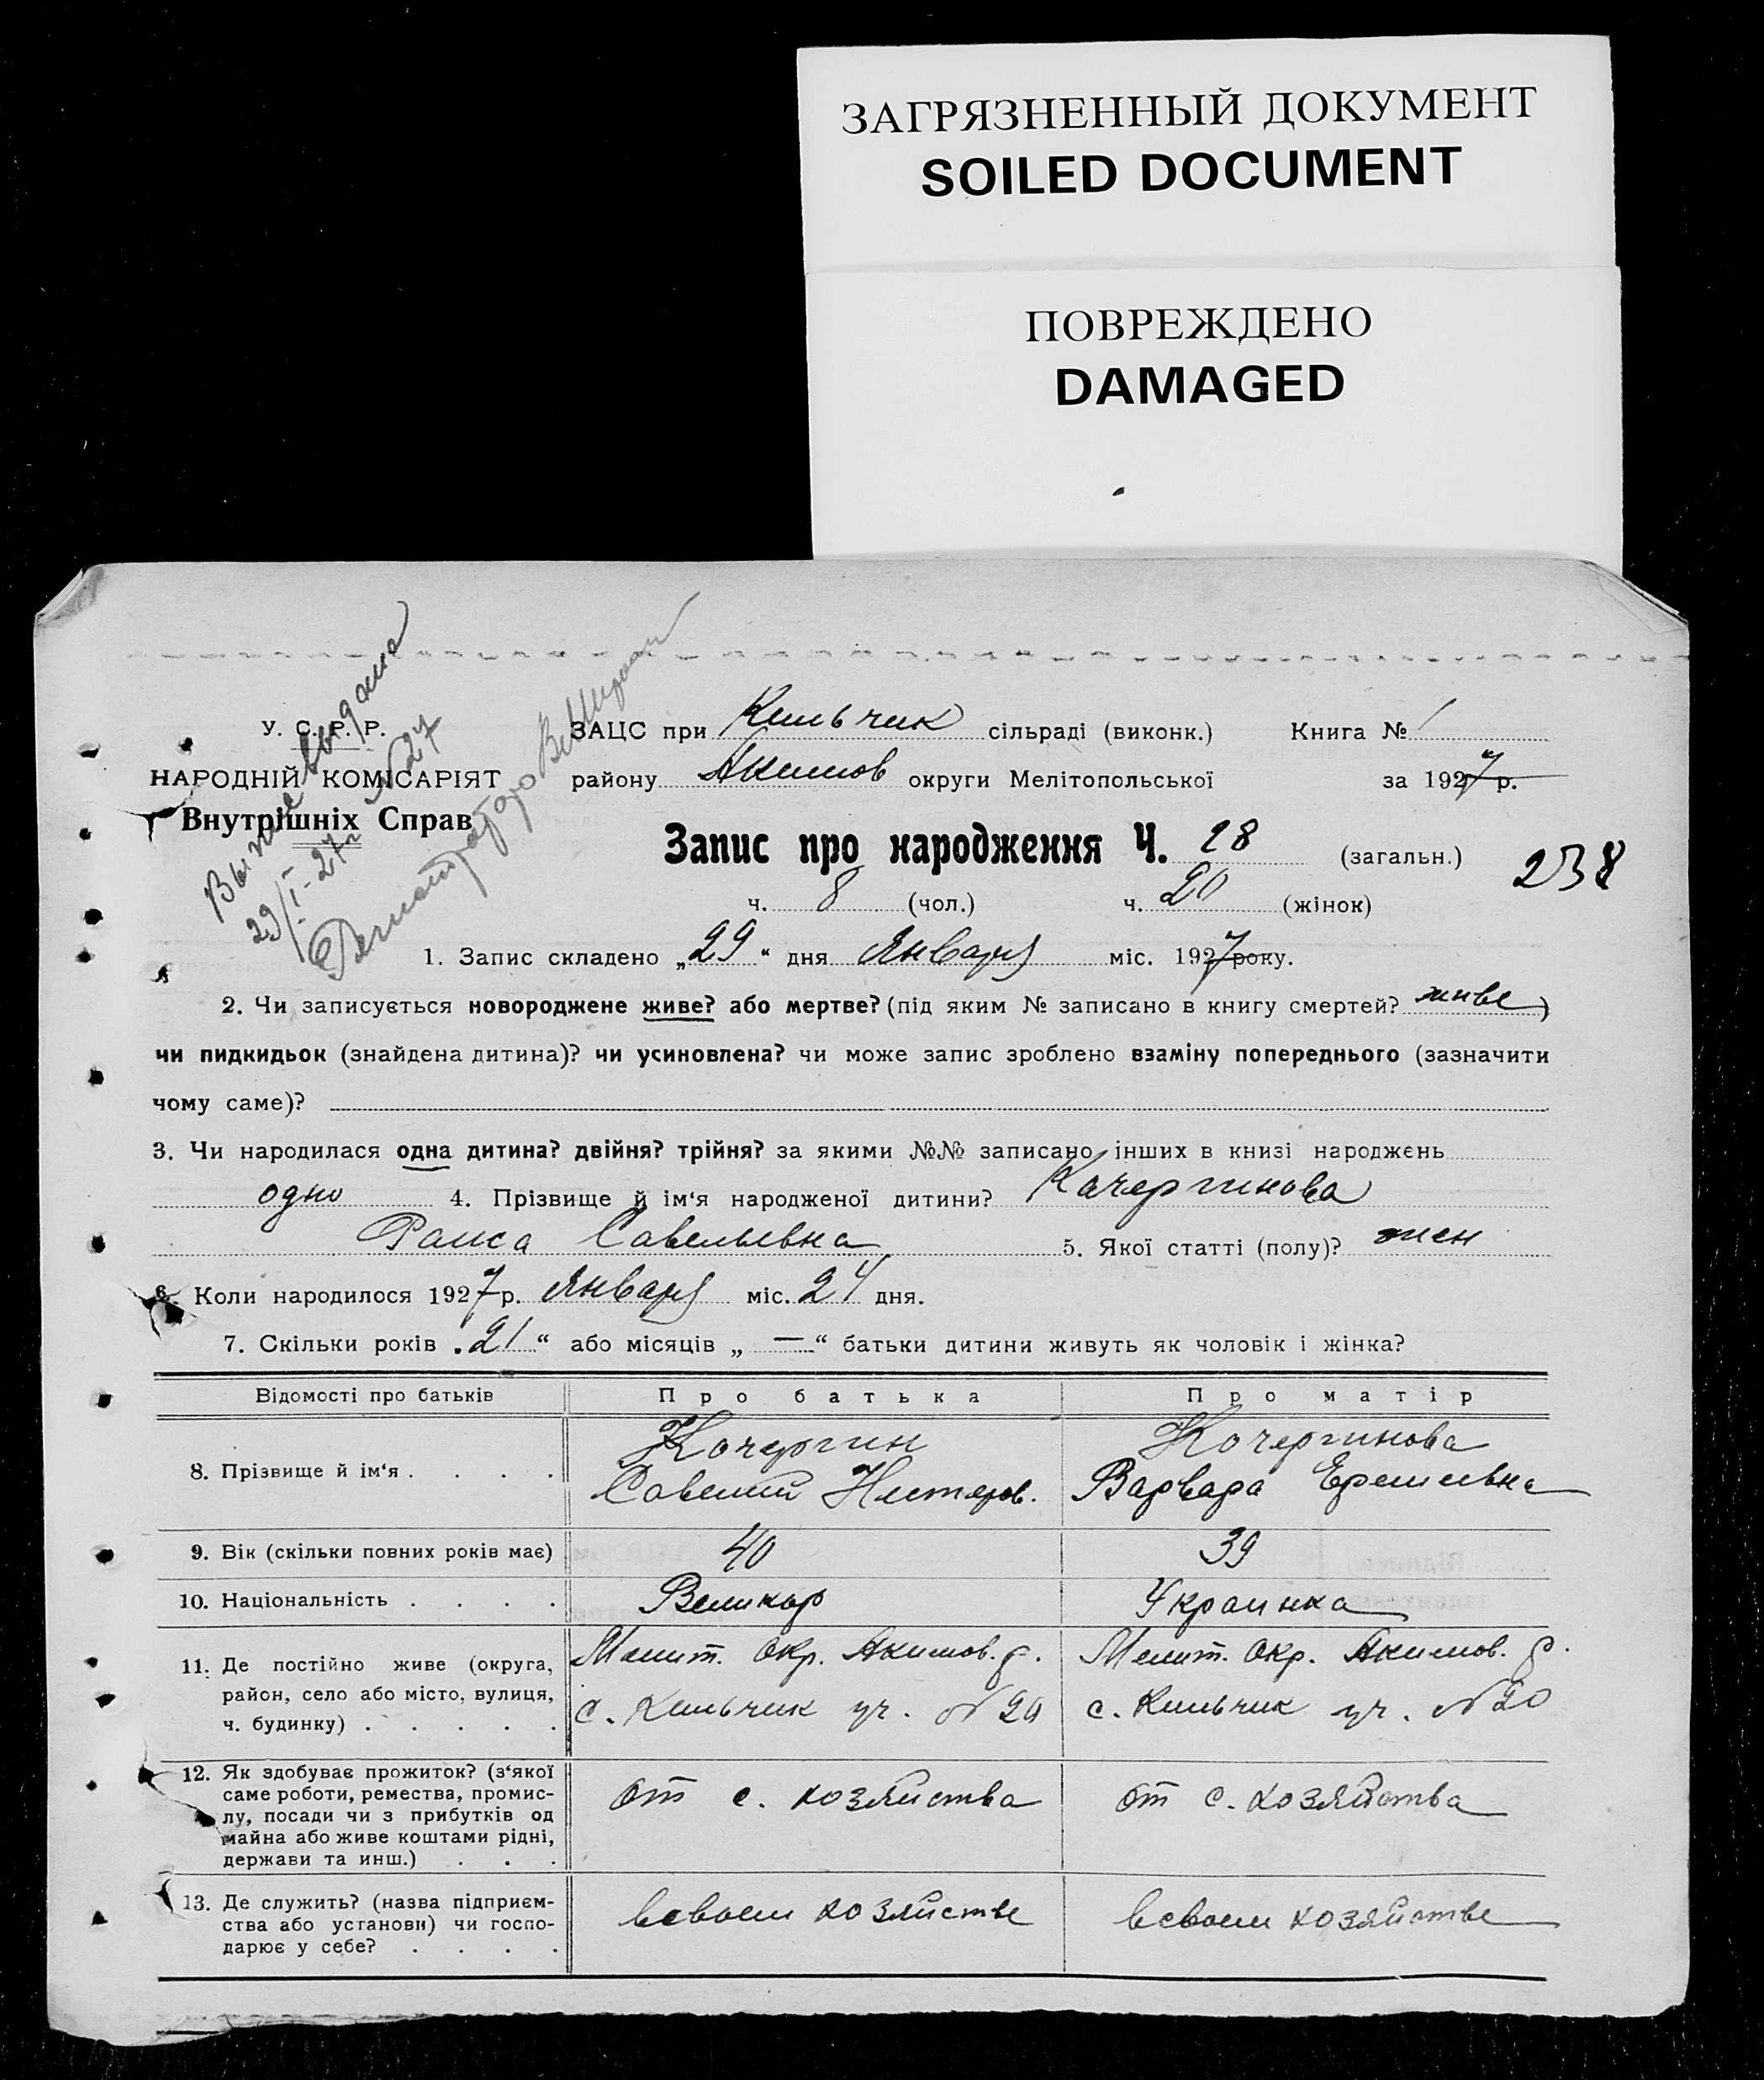 ЗАГРЯЗНЕННЫЙ ДОКУМЕНТ
SOILED DOCUMENT
ПОВРЕЖДЕНО
DAMAGED
У. С. Р. Р.
НАРОДНІЙ КОМІСАРІЯТ
Внутрішніх Справ
выдана
29/I-27г №27
ЗАЦС при Кильчик сільраді (виконк.) Книга № 1
району Акимов округи Мелітопольської за 1927 р.
Запис про народження Ч. 28 (загальн.) 238
ч. 8 (чол.) ч. 20 (жінок)
1. Запис складено „29“ дня Января міс. 1927 року.
2. Чи записується новороджене живе? або мертве? (під яким № записано в книгу смертей? живе)
чи пидкидьок (знайдена дитина)? чи усиновлена? чи може запис зроблено взаміну попереднього (зазначити
чому саме)?
3. Чи народилася одна дитина? двійня? трійня? за якими №№ записано інших в книзі народжень
одно 4. Прізвище й ім‘я народженої дитини? Качергинова
Раиса Савельевна 5. Якої статті (полу)? жен
6. Коли народилося 1927 р. Января міс. 24 дня.
7. Скільки років „21“ або місяців „—“ батьки дитини живуть як чоловік і жінка?
Відомості про батьків Про батька Про матір
8. Прізвище й ім‘я Кочергин Кочергинова
Савелий Нестеров. Варвара Еремеевна
9. Вік (скільки повних років має) 40 39
10. Національність Великор Украинка
11. Де постійно живе (округа, Мелит. Окр. Акимов. р. Мелит. Окр. Акимов. р.
район, село або місто, вулиця, с. Кильчик уч. №20 с. Кильчик уч. №20
ч. будинку)
12. Як здобуває прожиток? (з‘якої
саме роботи, ремества, промис- от с. хозяйства от с. хозяйства
лу, посади чи з прибутків од
майна або живе коштами рідні,
держави та инш.)
13. Де служить? (назва підприєм- всвоем хозяйстве всвоем хозяйстве
ства або установи) чи госпо-
дарює у себе?